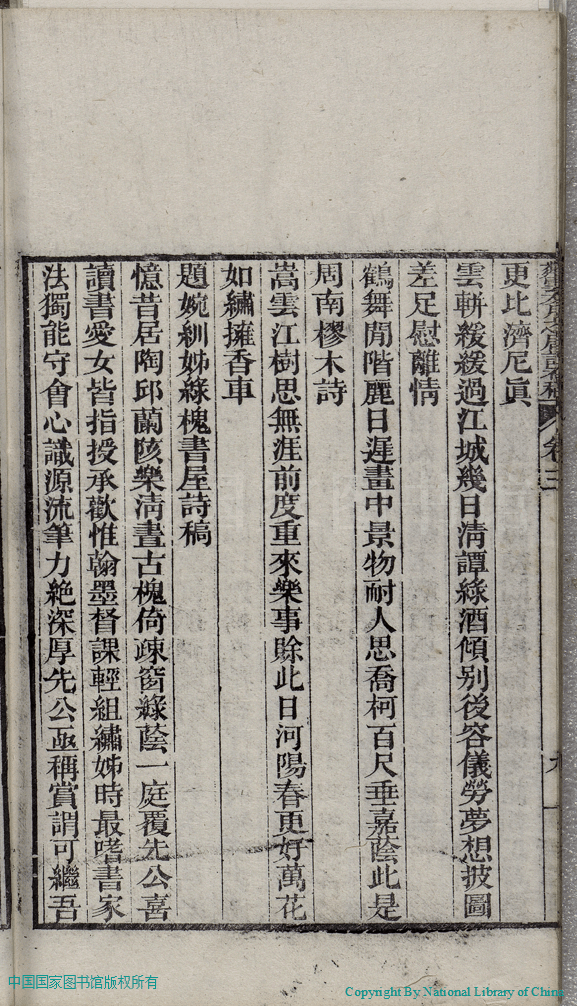 卷三
九
更比濟尼眞
雲輧緩緩過江城幾日淸譚綠酒傾别後容儀勞夢想披圖
差足慰離情
鶴舞閒階麗日遲畫中景物耐人思喬柯百尺垂嘉蔭此是
周南樛木詩
嵩雲江樹思無涯前度重來樂事賒此日河陽春更好萬花
如繡擁香車
題婉紃姊綠槐書屋詩稿
憶昔居陶邱蘭陔樂淸晝古槐倚疎窗綠蔭一庭覆先公喜
讀書愛女皆指授承歡惟翰墨督課輕組繡姊時最嗜書家
法獨能守會心識源流筆力絶深厚先公亟稱賞謂可繼吾
中国国家图书馆版权所有
Copyright By National Library of China